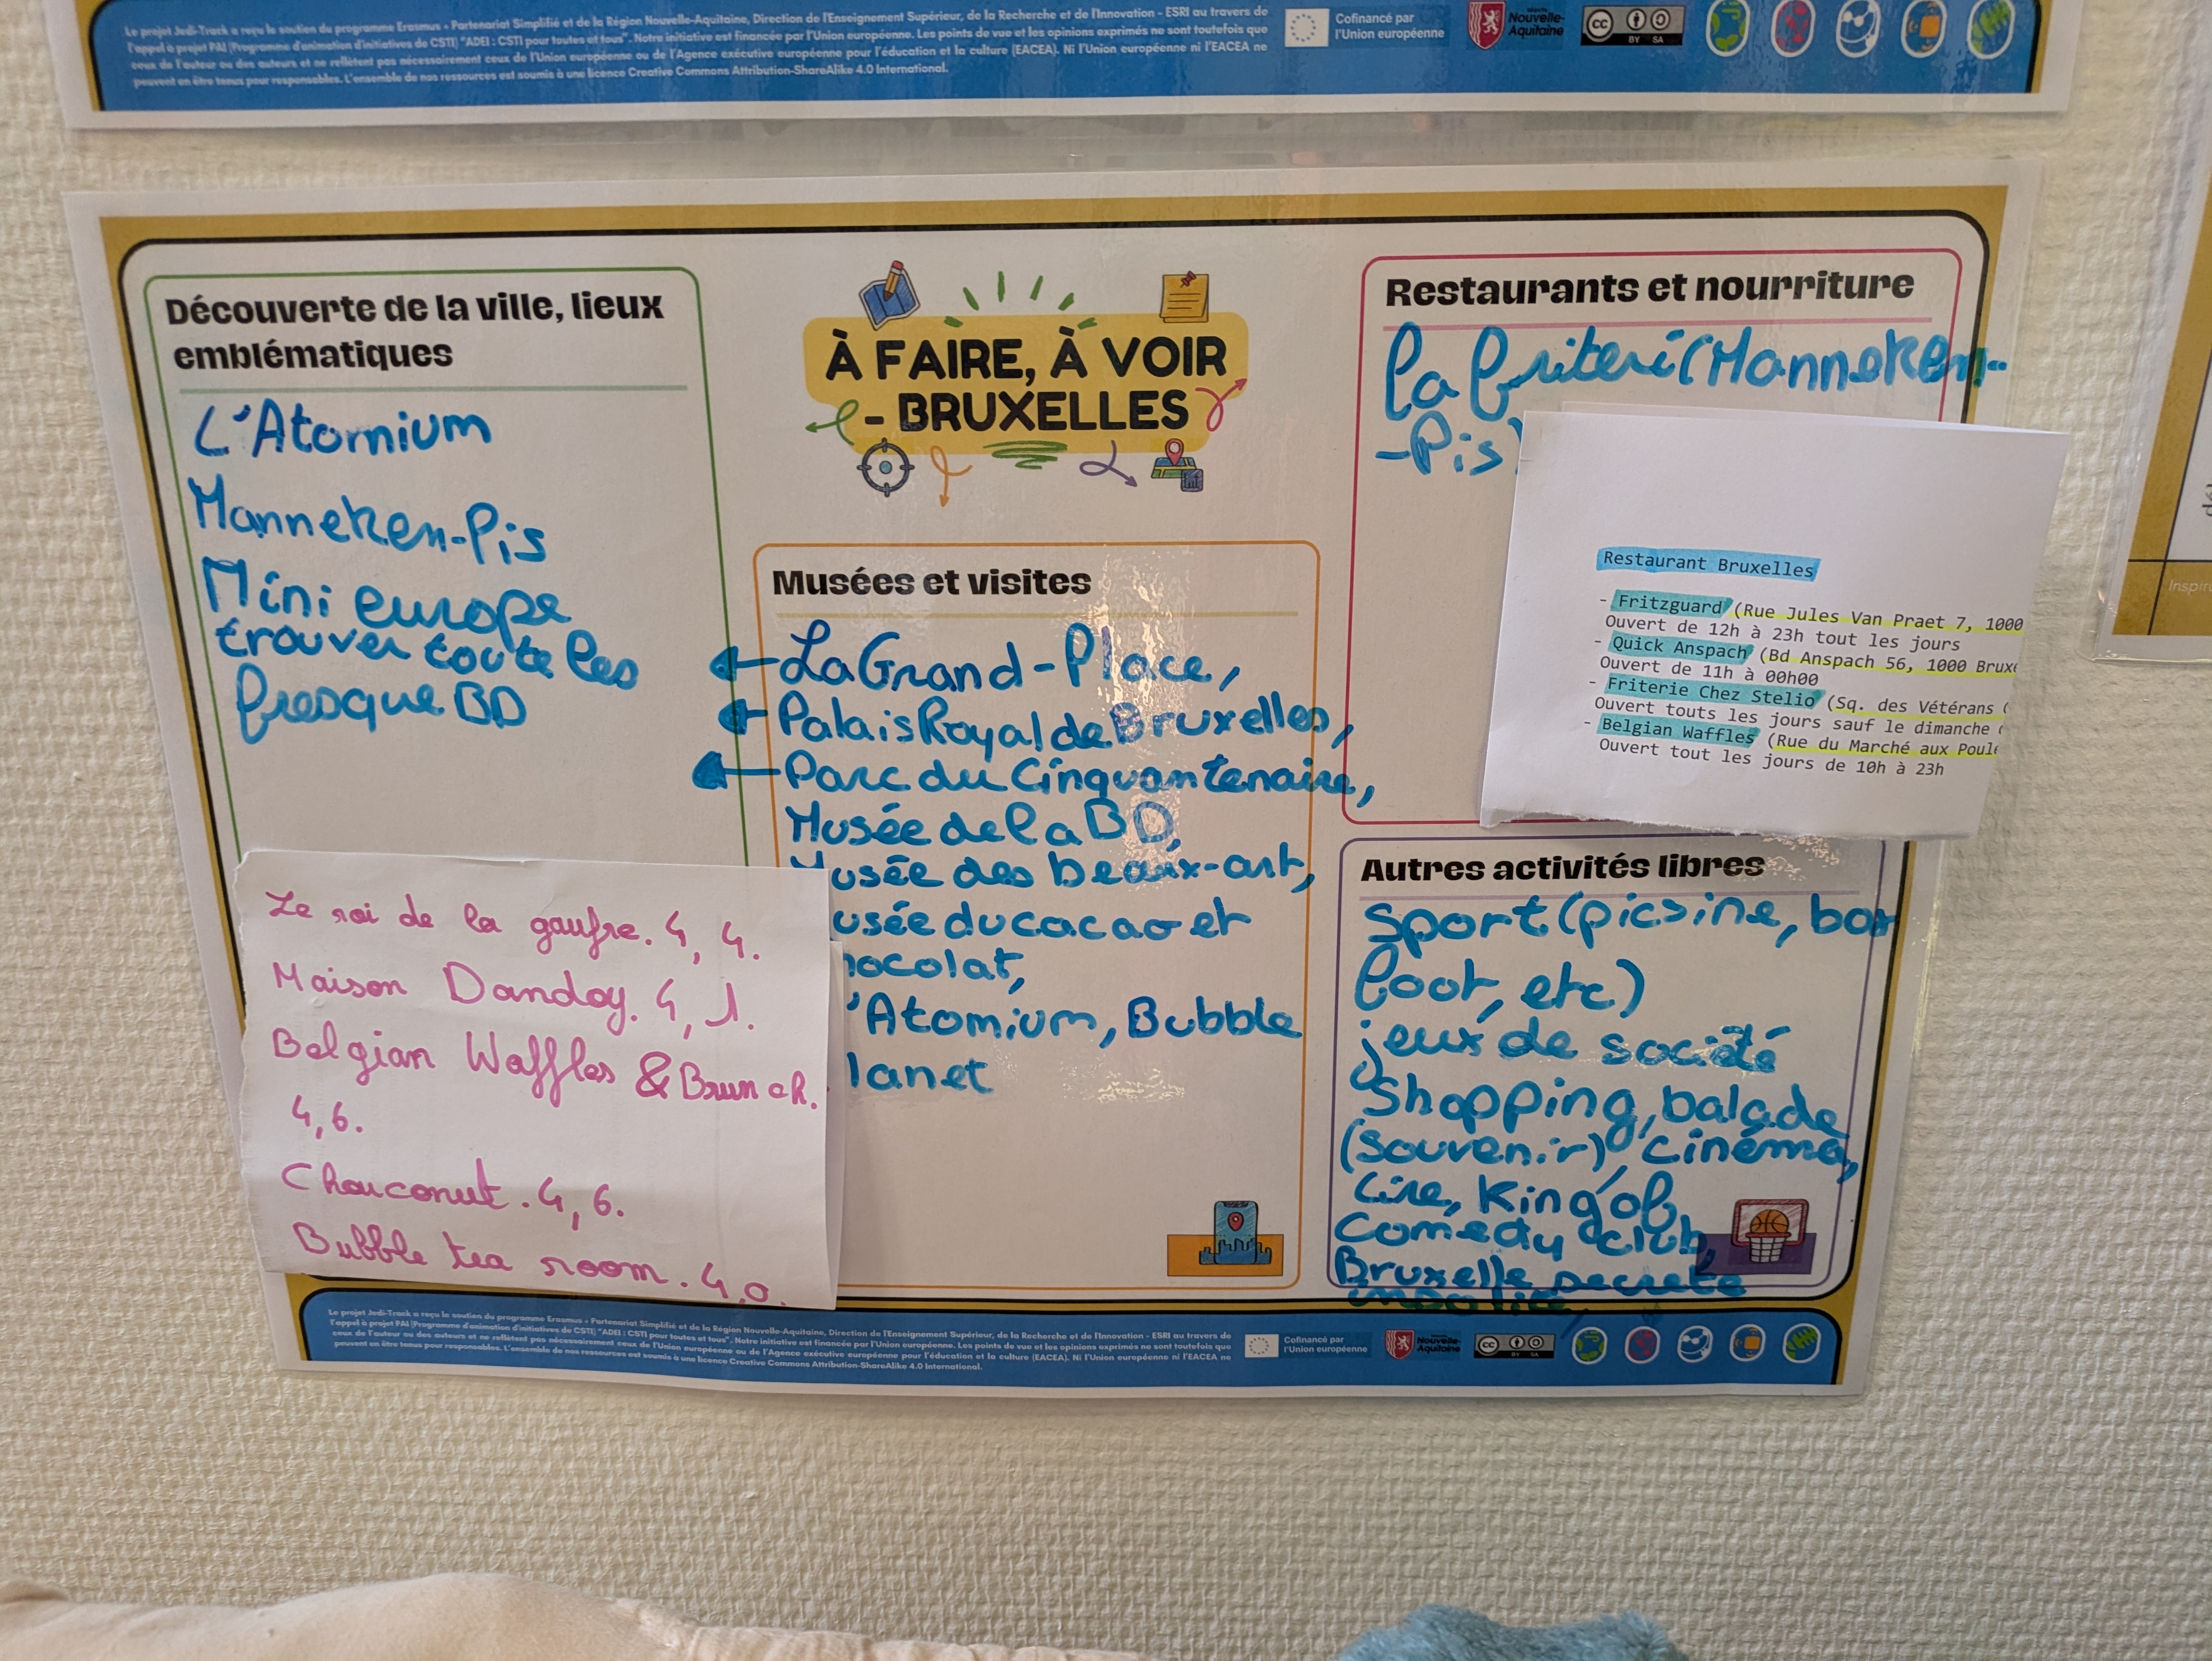 Le projet Jedi-Track a reçu le soutien du programme Erasmus + Partenariat Simplifié et de la Région Nouvelle-Aquitaine, Direction de l'Enseignement Supérieur, de la Recherche et de l'Innovation - ESRI au travers de
l'appel à projet PAI (Programme d'animation d'initiatives de CSTI) "ADEI : CSTI pour toutes et tous". Notre initiative est financée par l'Union européenne. Les points de vue et les opinions exprimés ne sont toutefois que
ceux de l'auteur ou des auteurs et ne reflètent pas nécessairement ceux de l'Union européenne ou de l'Agence exécutive européenne pour l'éducation et la culture (EACEA). Ni l'Union européenne ni l'EACEA ne
peuvent en être tenus pour responsables. L'ensemble de nos ressources est soumis à une licence Creative Commons Attribution-ShareAlike 4.0 International.
Cofinancé par
l'Union européenne
Nouvelle-
Aquitaine
cc
BY SA
À FAIRE, À VOIR
- BRUXELLES
Découverte de la ville, lieux
emblématiques
L'Atomium
Manneken-Pis
Mini europe
trouver toute les
fresque BD
Le roi de la gaufre. 4, 4.
Maison Dandoy. 4, 1.
Belgian Waffles & Brunch.
4,6.
Chouconut. 4, 6.
Bubble tea room. 4.0.
Musées et visites
La Grand-Place,
Palais Royal de Bruxelles,
Parc du Cinquantenaire,
Musée de la BD,
Musée des beaux-art,
usée du cacao et
hocolat,
'Atomium, Bubble
lanet
Restaurants et nourriture
La friteri (Manneken-
-Pis)
Restaurant Bruxelles
- Fritzguard (Rue Jules Van Praet 7, 1000
Ouvert de 12h à 23h tout les jours
- Quick Anspach (Bd Anspach 56, 1000 Brux
Ouvert de 11h à 00h00
- Friterie Chez Stelio (Sq. des Vétérans
Ouvert touts les jours sauf le dimanche
- Belgian Waffles (Rue du Marché aux Poul
Ouvert tout les jours de 10h à 23h
Autres activités libres
Sport (picsine, bar
foot, etc)
jeux de société
Shopping, balade
(souvenir), cinéma,
Lire, King of
Comedy club,
Bruxelle secrete
Inspir
Le projet Jedi-Track a reçu le soutien du programme Erasmus + Partenariat Simplifié et de la Région Nouvelle-Aquitaine, Direction de l'Enseignement Supérieur, de la Recherche et de l'Innovation - ESRI au travers de
l'appel à projet PAI (Programme d'animation d'initiatives de CSTI) "ADEI : CSTI pour toutes et tous". Notre initiative est financée par l'Union européenne. Les points de vue et les opinions exprimés ne sont toutefois que
ceux de l'auteur ou des auteurs et ne reflètent pas nécessairement ceux de l'Union européenne ou de l'Agence exécutive européenne pour l'éducation et la culture (EACEA). Ni l'Union européenne ni l'EACEA ne
peuvent en être tenus pour responsables. L'ensemble de nos ressources est soumis à une licence Creative Commons Attribution-ShareAlike 4.0 International.
Cofinancé par
l'Union européenne
Nouvelle-
Aquitaine
cc
BY SA